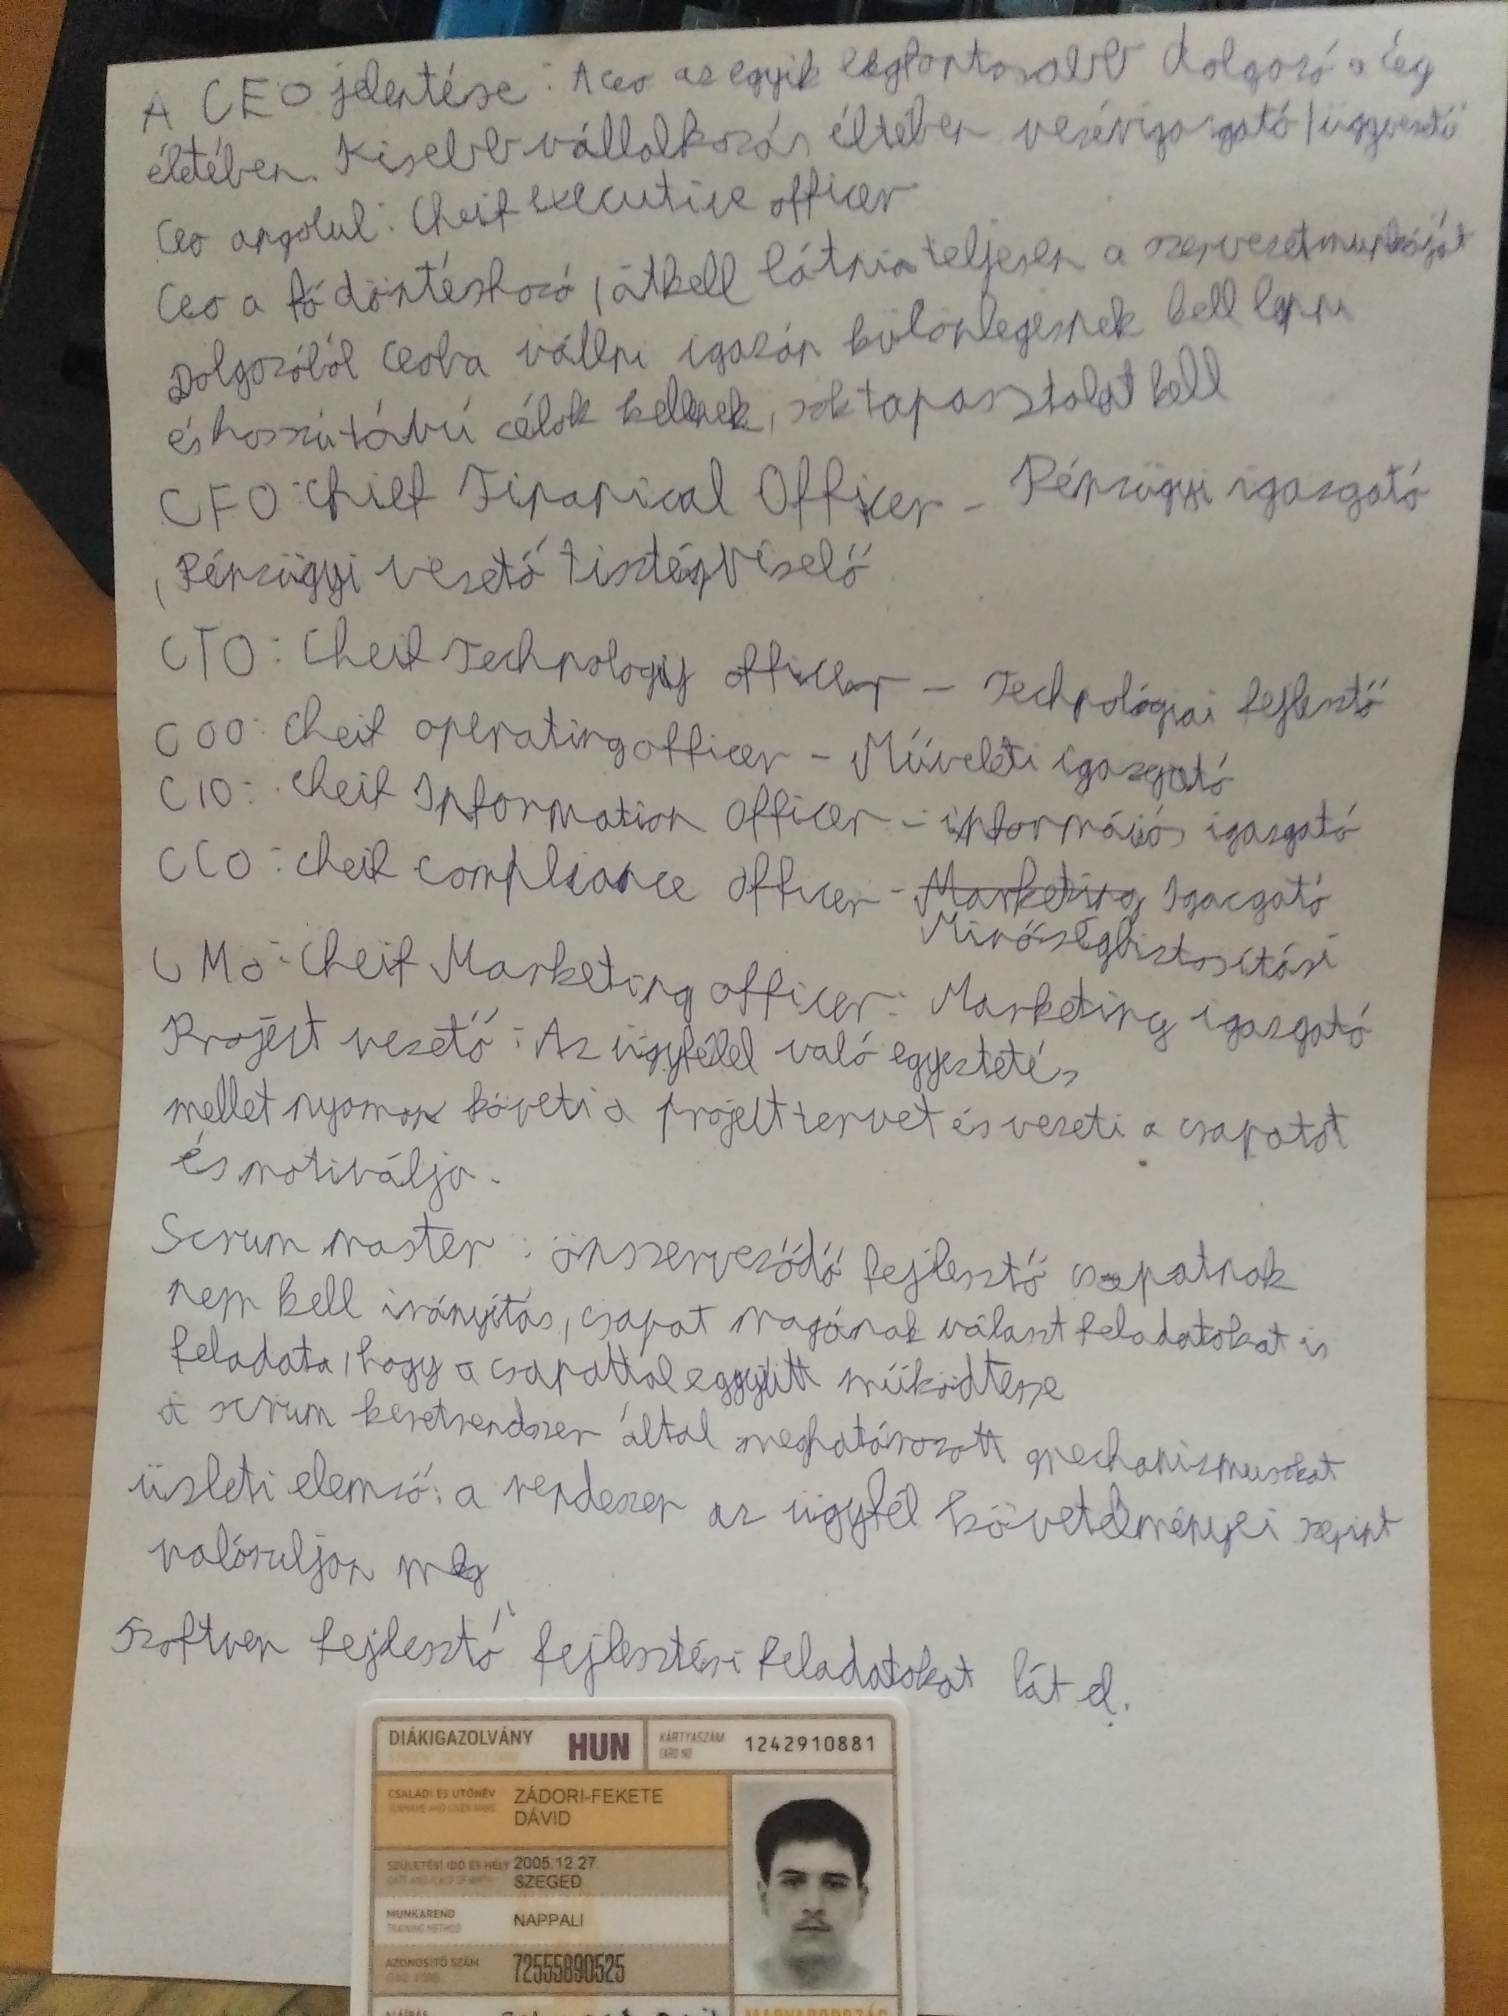 A CEO jelentése: A ceo az egyik legfontosabb dolgozó a cég
életében. Kisebb vállalkozás éltében vezérigazgató/ügyvezető
Ceo angolul: Cheif executive officer
Ceo a fő döntéshozó, át kell látnia teljesen a szervezet munkáját
Dolgozóból ceoba vállni igazán különlegesnek kell lenni
és hosszútávú célok kellenek, sok tapasztalat kell
CFO: Chief Finanical Officer - Pénzügyi igazgató
, Pénzügyi vezető tisztégviselő
CTO: Cheif Technology officer - Technológiai fejlesztő
COO: cheif operating officer - Műveleti igazgató
CIO: cheif Information Officer - információs igazgató
CCO: cheif compliance officer - Marketing Igazgató
Minőségbiztosítási
CMO: cheif Marketing officer: Marketing igazgató
Projekt vezető: Az ügyféllel való egyeztetés
mellet nyomon követi a projekttervet és vezeti a csapatot
és motiválja.
Scrum master: önszerveződő fejlesztő csapatnak
nem kell irányítás, csapat magának választ feladatokat is
feladata, hogy a csapattal együtt működtesse
a scrum keretrendszer által meghatározott mechanizmusokat
üzleti elemző: a rendszer az ügyfél követelményei szerint
valósuljon meg
Szoftver fejlesztő: fejlesztési feladatokat lát el.
DIÁKIGAZOLVÁNY HUN KÁRTYASZÁM 1242910881
CARD NO
CSALÁDI ÉS UTÓNÉV ZÁDORI-FEKETE
DÁVID
SZÜLETÉSI IDŐ ÉS HELY 2005.12.27.
SZEGED
MUNKAREND NAPPALI
TRAINING METHOD
AZONOSÍTÓ SZÁM 72555890525
ALÁÍRÁS
MAGYARORSZÁG